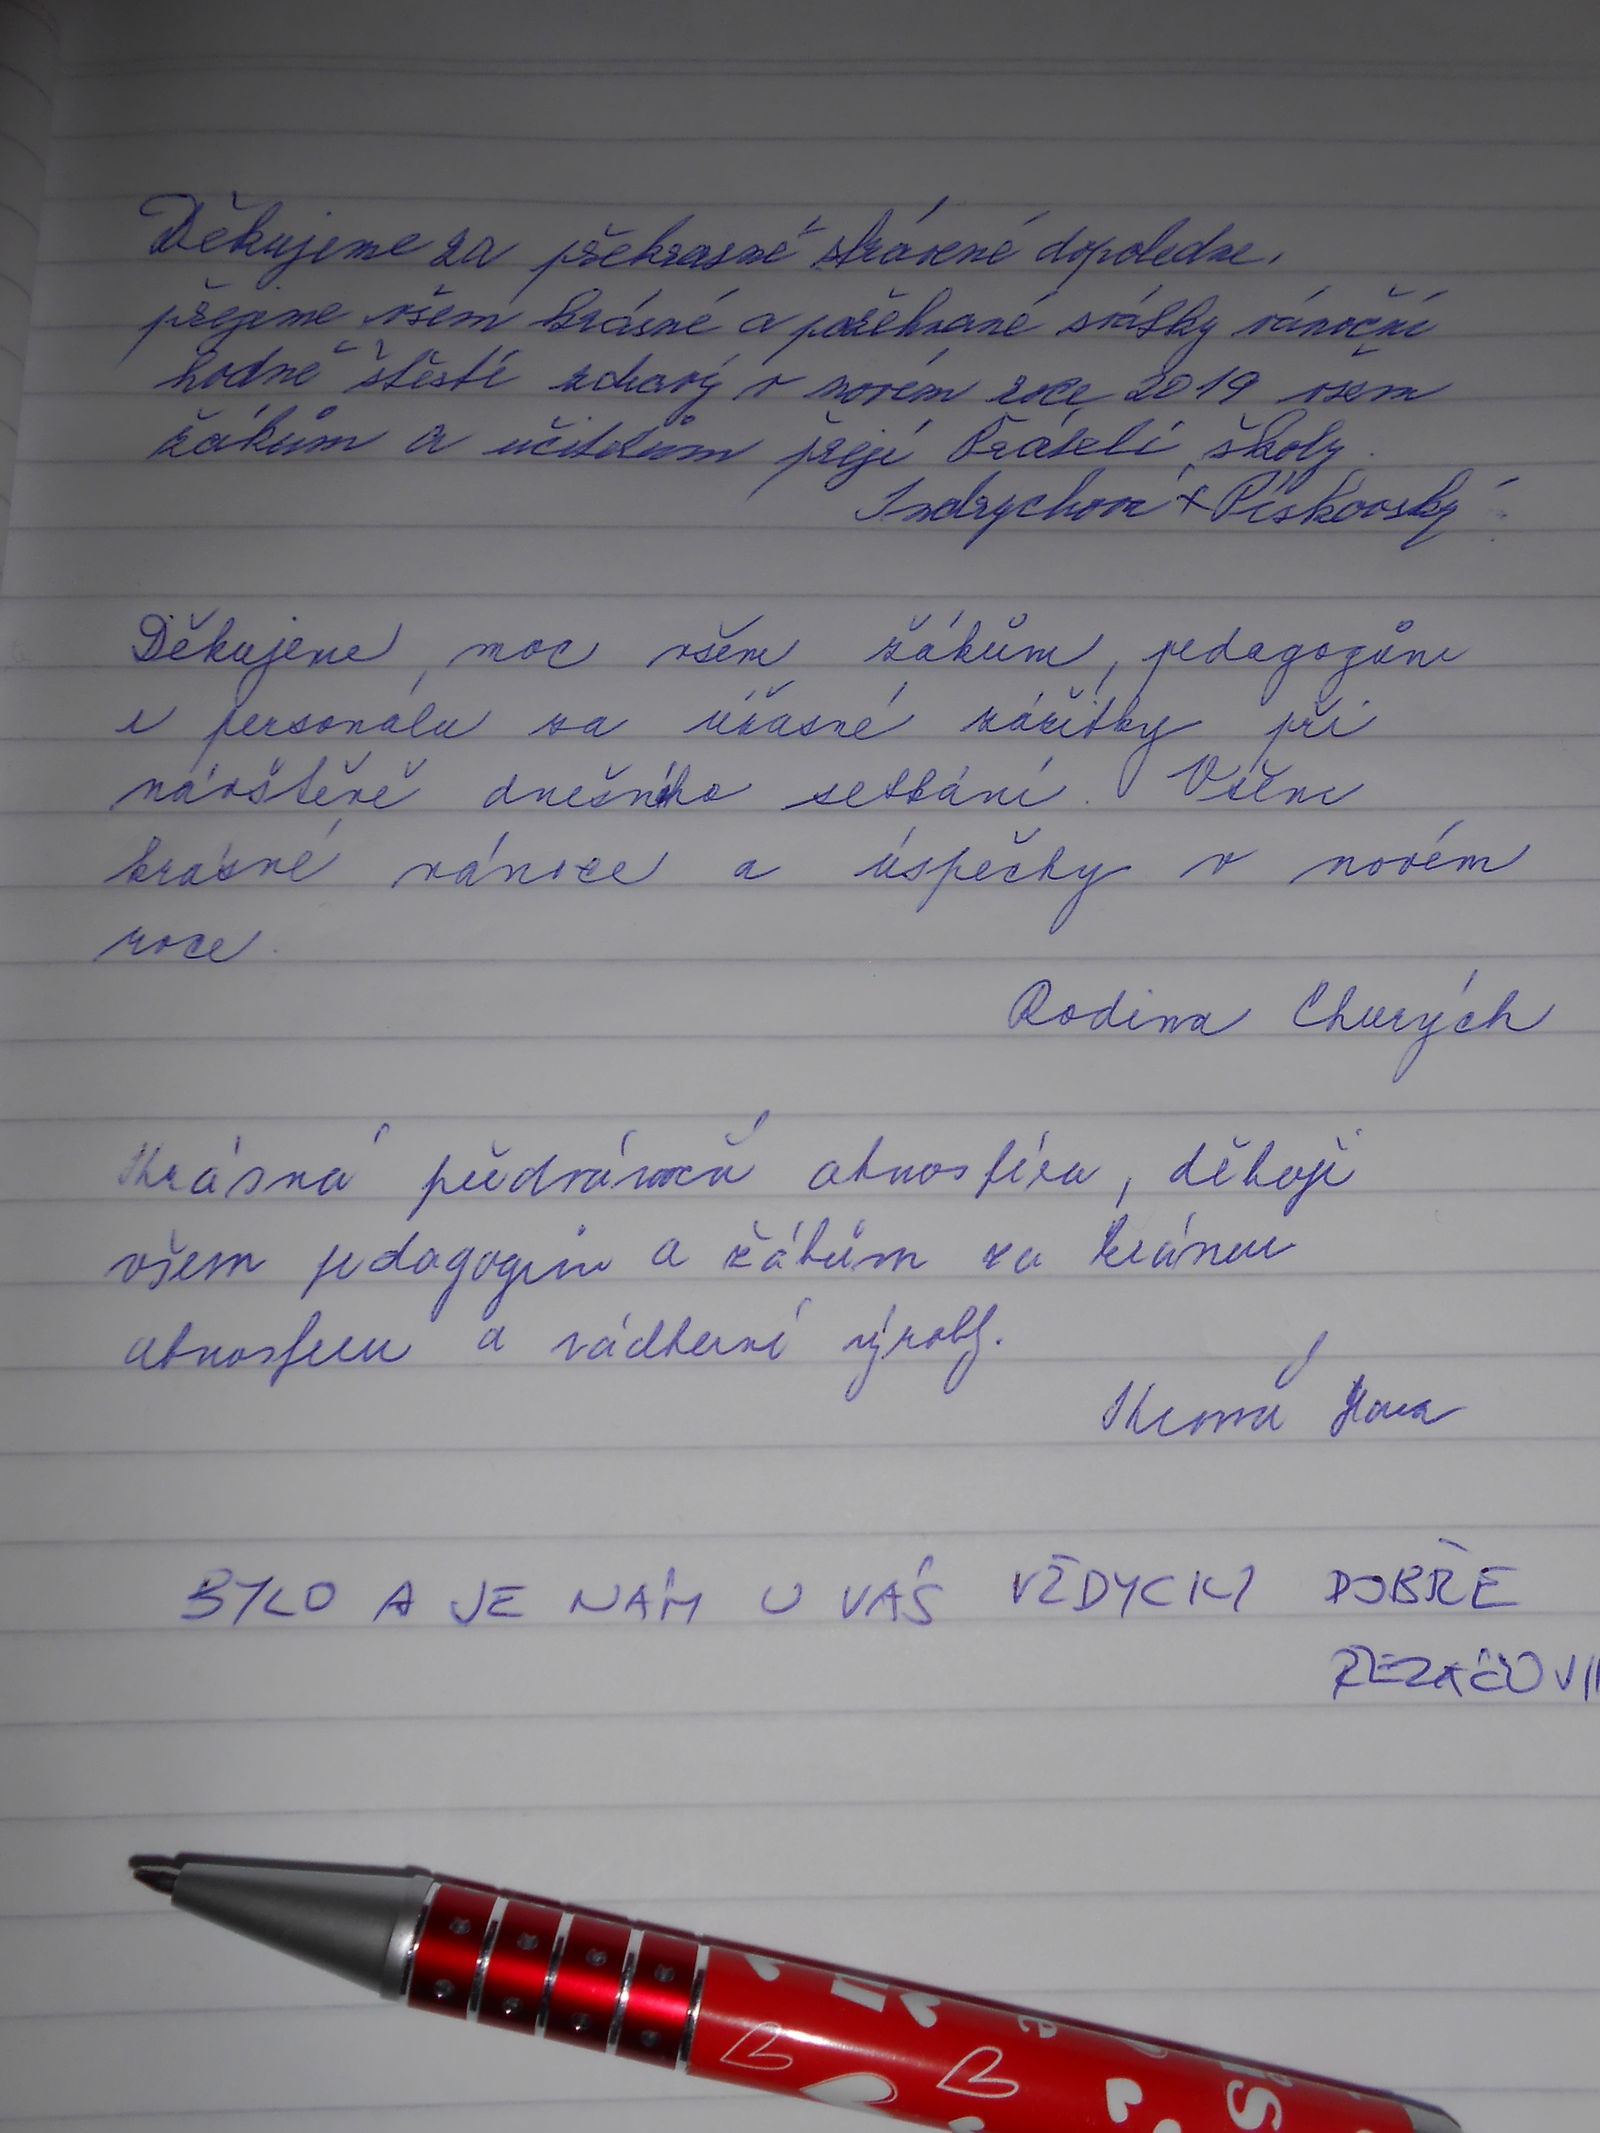 Děkujeme za překrasně strávené dopoledne.
přejeme všem krásné a požehnané svátky vánoční
hodně štěstí zdraví v novém roce 2019 všem
žákům a učitelům přejí Přátelí školy.
Indrychová + Pískovský
Děkujeme moc všem žákům, pedagogům
i personálu za úžasné zážitky při
návštěvě dnešního setkání. Všem
krásné vánoce a úspěchy v novém
roce.
Rodina Churých
Krásná předvánoční atmosféra, děkuji
všem pedagogům a žákům za krásnou
atmosferu a nádherné výrobky.
Hana
BYLO A JE NÁM U VÁS VŽDYCKY DOBŘE
ŘEZÁČOVI